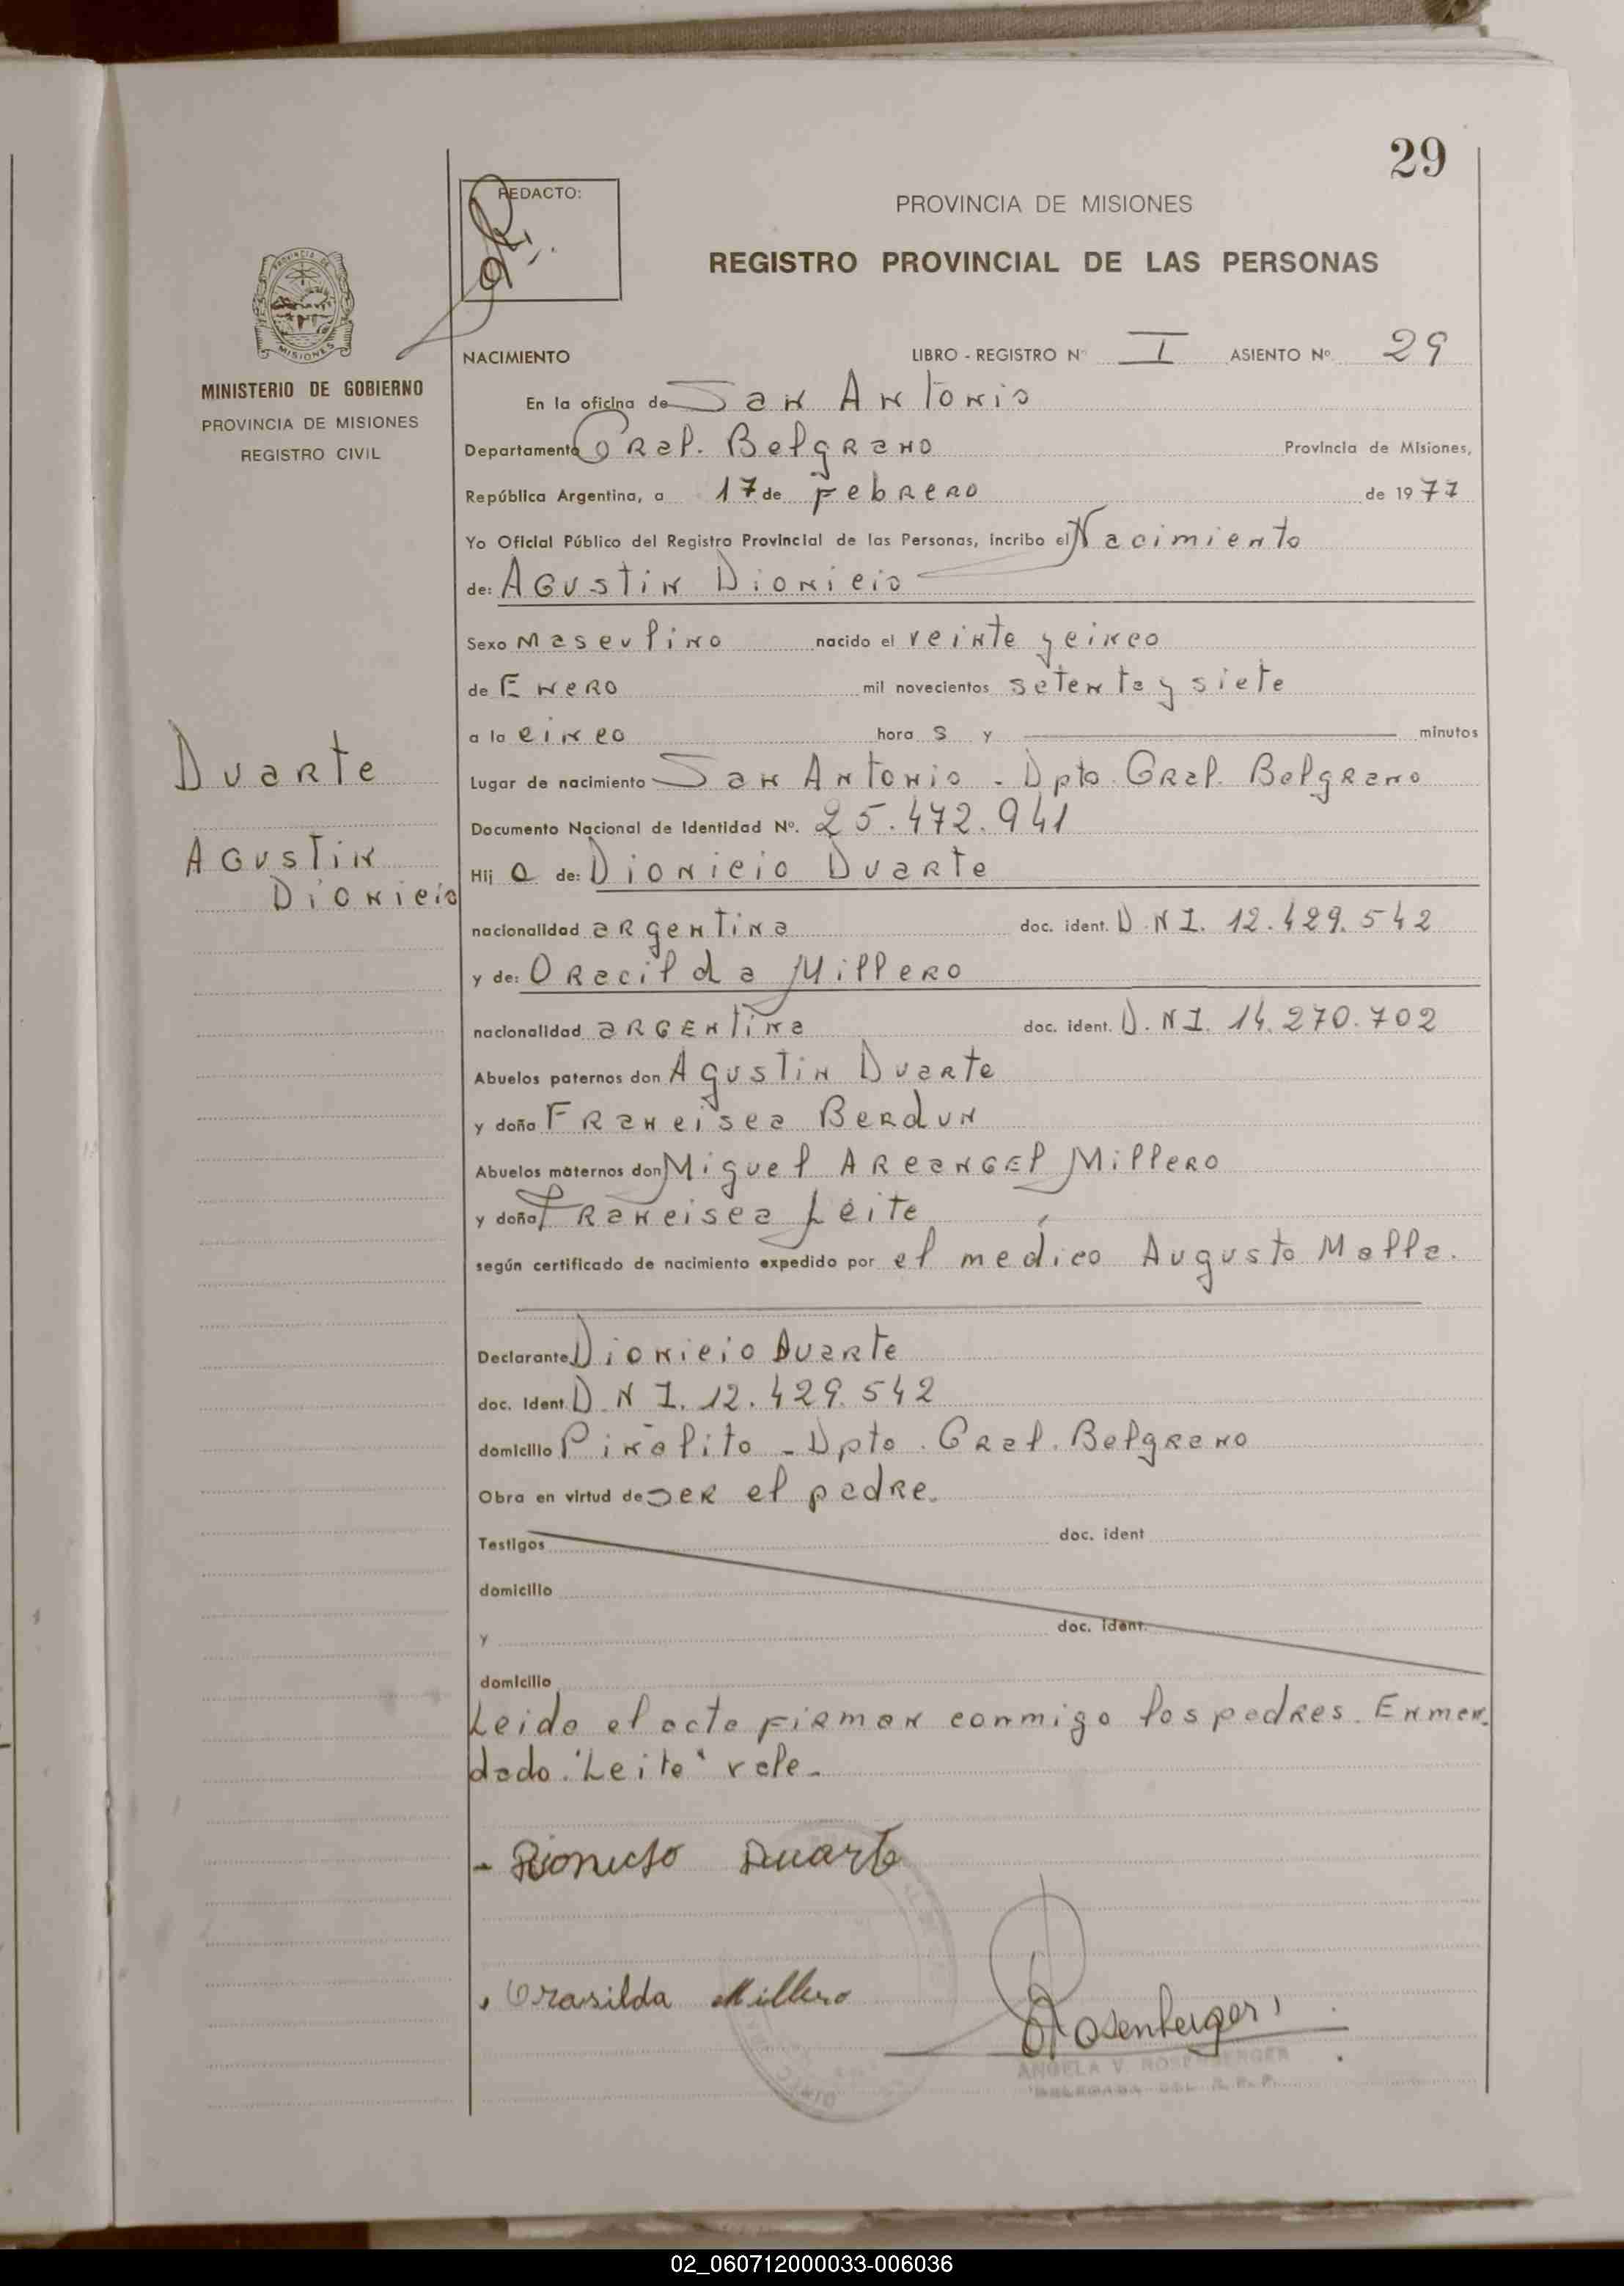 29
REDACTO:
PROVINCIA DE MISIONES
REGISTRO PROVINCIAL DE LAS PERSONAS
MISIONES
MINISTERIO DE GOBIERNO
PROVINCIA DE MISIONES
REGISTRO CIVIL
NACIMIENTO LIBRO - REGISTRO Nº I ASIENTO Nº 29
En la oficina de San Antonio
Departamento Gral. Belgrano Provincia de Misiones,
República Argentina, a 17 de Febrero de 1977
Yo Oficial Público del Registro Provincial de las Personas, incribo el Nacimiento
de: Agustin Dionicio
Sexo masculino nacido el veinte y cinco
de Enero mil novecientos setenta y siete
a la cinco hora s y minutos
Duarte
Agustin
Dionicio
Lugar de nacimiento San Antonio - Dpto. Gral. Belgrano
Documento Nacional de Identidad Nº. 25.472.941
Hij o de: Dionicio Duarte
nacionalidad argentina doc. ident. D.N.I. 12.429.542
y de: Oracilda Millero
nacionalidad argentina doc. ident. D.N.I. 14.270.702
Abuelos paternos don Agustin Duarte
y doña Francisca Berdun
Abuelos maternos don Miguel Arcangel Millero
y doña Francisca Leite
según certificado de nacimiento expedido por el médico Augusto Malla.
Declarante Dionicio Duarte
doc. Ident. D.N.I. 12.429.542
domicilio Piñalito - Dpto. Gral. Belgrano
Obra en virtud de ser el padre.
Testigos doc. ident
domicilio
y doc. ident.
domicilio
Leida el acta firman conmigo los padres. Enmen-
dado: "Leite" vale.-
- Dionicio Duarte
Orasilda Millero
Rosenberger
ANGELA V. ROSENBERGER
DELEGADA DEL R.P.P.
02_060712000033-006036